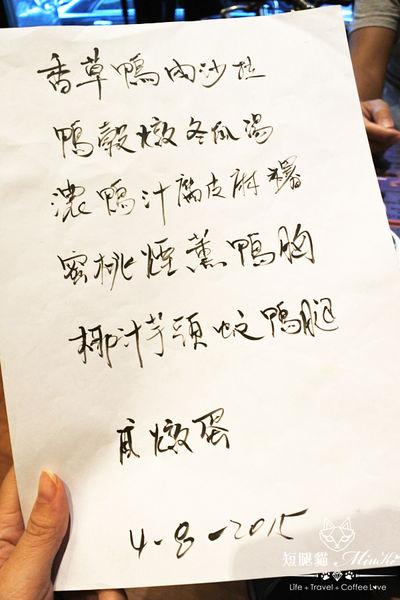 香草鴨肉沙拉
鴨殼燉冬瓜湯
濃鴨汁腐皮麻糬
蜜桃煙薰鴨胸
椰汁芋頭炆鴨腿
燉蛋
4-8-2015
短腿貓 MinKi
Life + Travel + Coffee Love